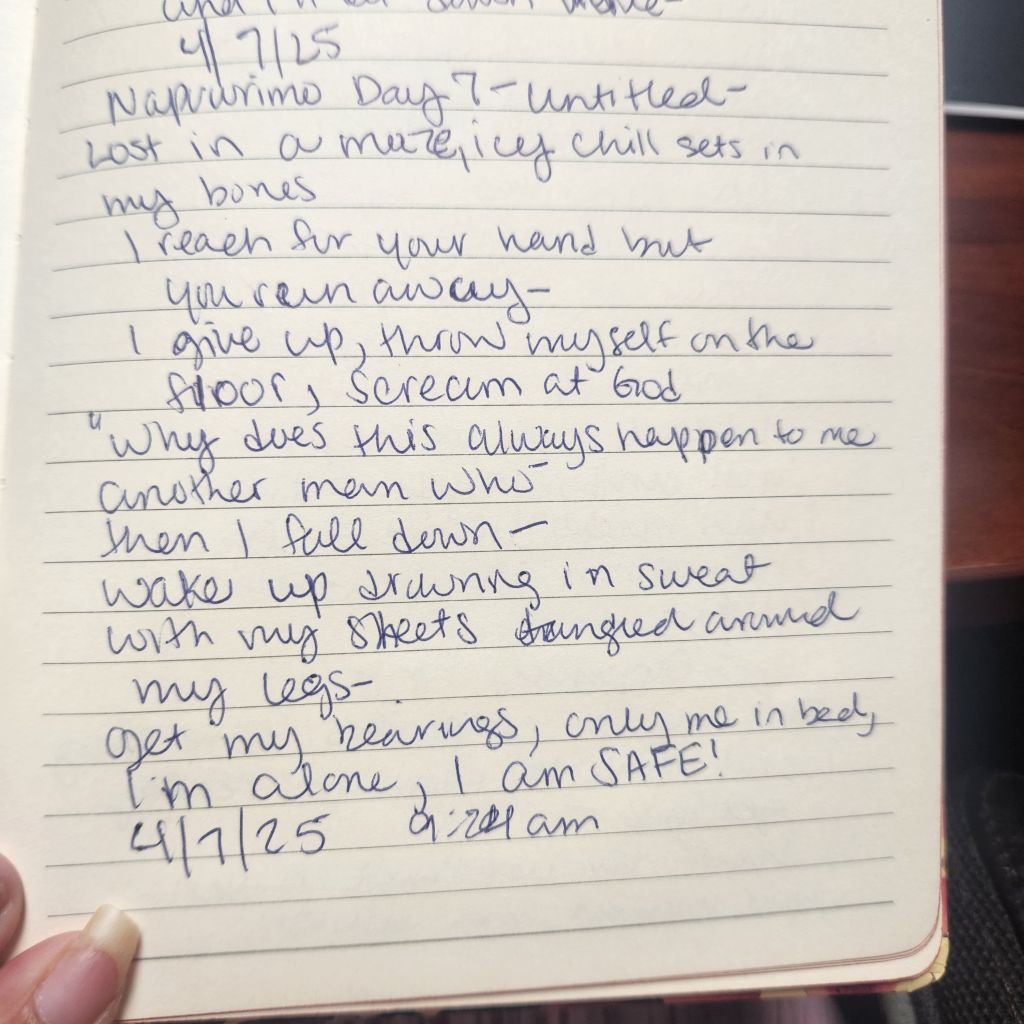 4/7/25
Napowrimo Day 7 - Untitled -
Lost in a maze, icy chill sets in
my bones
I reach for your hand but
you run away -
I give up, throw myself on the
floor, scream at God
"Why does this always happen to me
another man who -
then I fall down -
wake up drowning in sweat
with my sheets tangled around
my legs -
get my bearings, only me in bed,
I'm alone, I am SAFE!
4/7/25 9:24 am